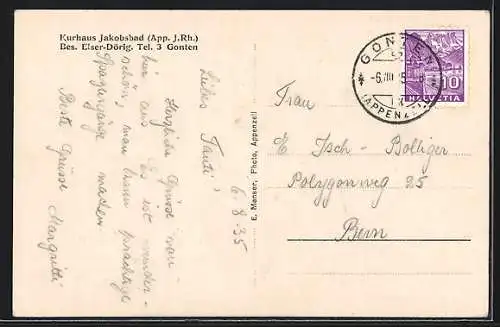 Kurhaus Jakobsbad (App. J.Rh.)
Bes. Elser-Dörig. Tel. 3 Gonten
6. 8. 35
Liebes Tanti!
Herzliche Grüsse von
hier aus. Es ist wunder-
schön, man kann prächtige
Spaziergänge machen.
Beste Grüsse
Margritli
E. Manser, Photo, Appenzell
GONTEN
-6.VIII.35
(APPENZELL)
10
HELVETIA
Frau
E. Isch-Bolliger
Polygonweg 25
Bern